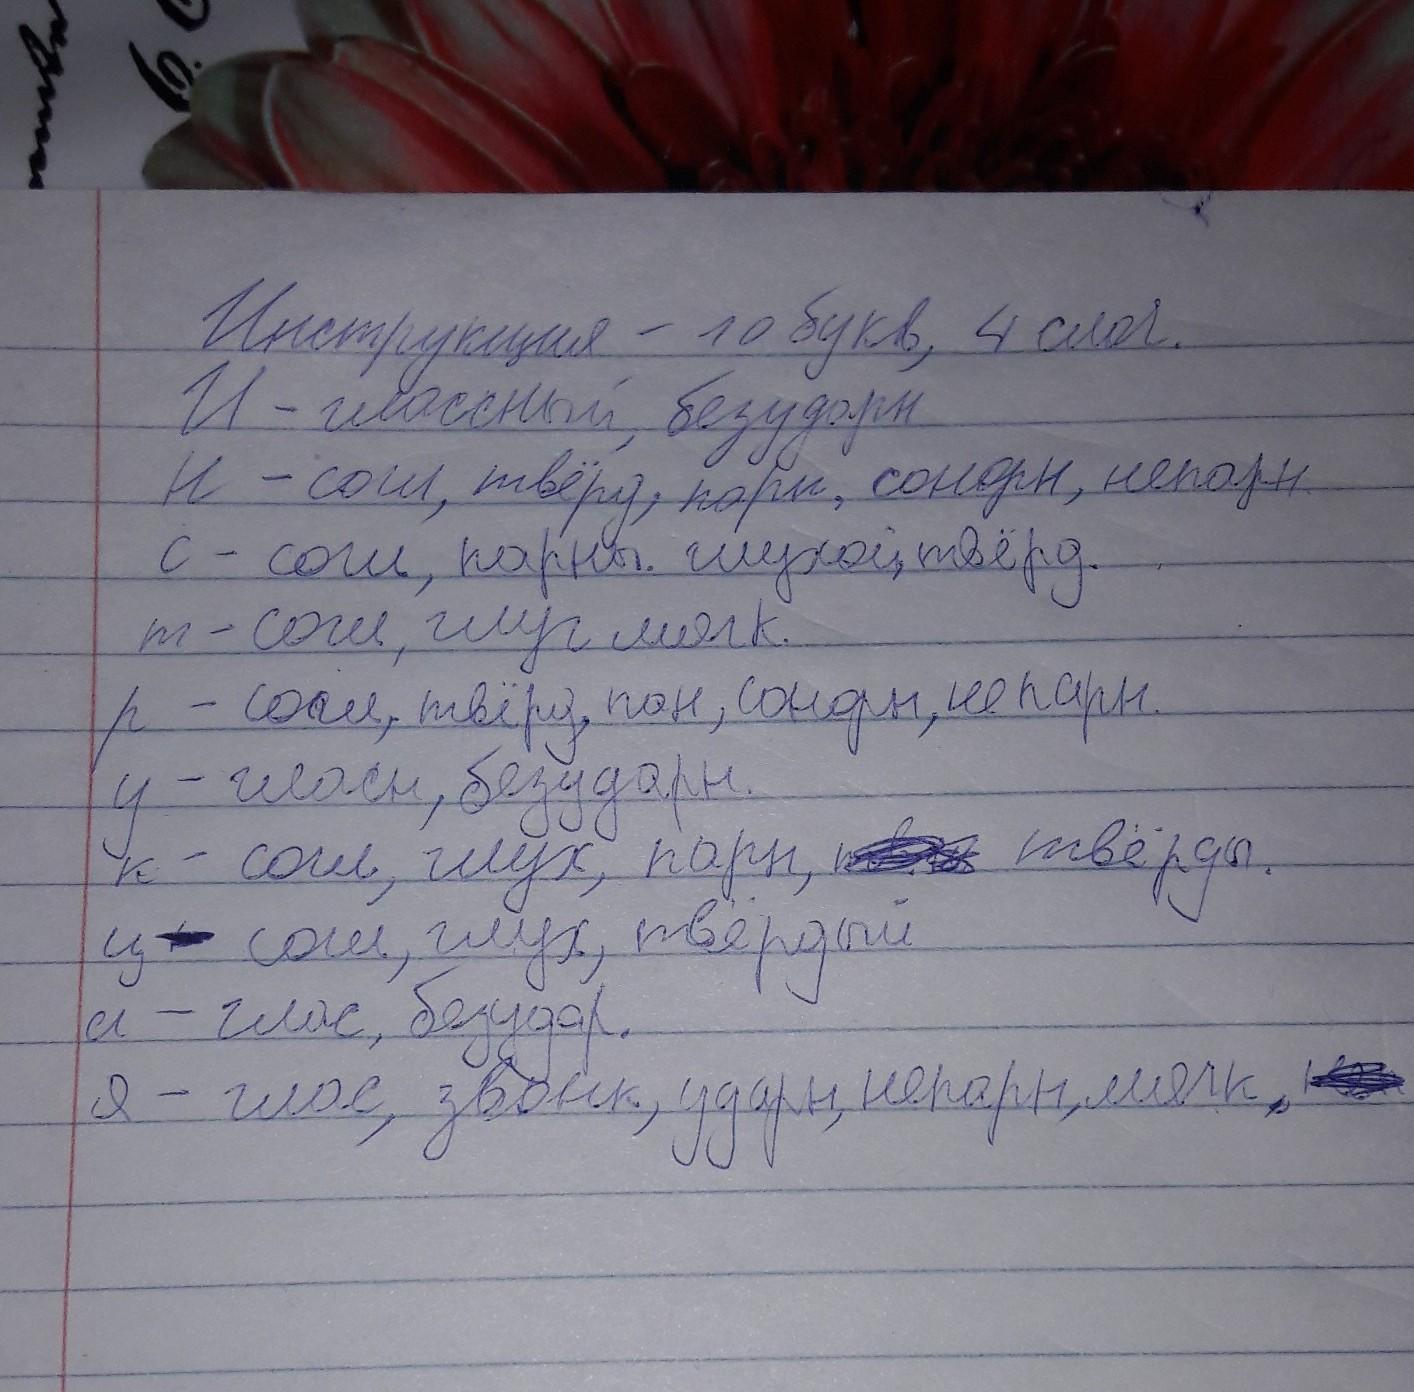 Инструкция - 10 букв, 4 слог.
И - глассный, безударн
Н - согл, твёрд, парн, сонорн, непарн.
с - согл, парны. глухой, твёрд.
т - согл, глуг мягк.
р - согл, твёрд, пан, сонорн, непарн.
у - гласн, безударн.
к - согл, глух, парн, твёрды.
ц - согл, глух, твёрдый
и - глас, безудар.
я - глас, звонк, ударн, непарн, мягк,